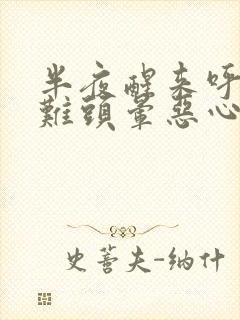 半夜醒来呼
難頭暈惡心
史蒈夫-纳什